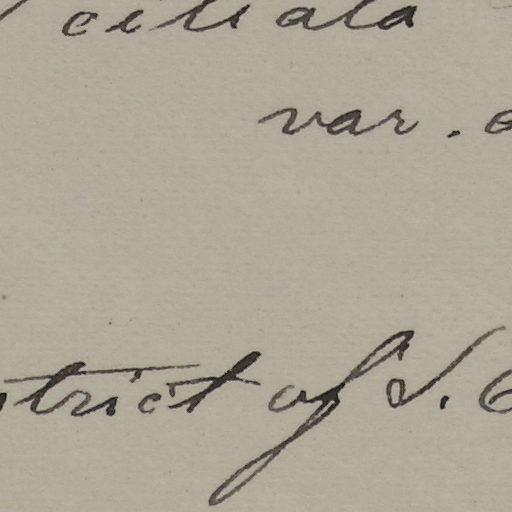 ciliata
var.
strict of S.